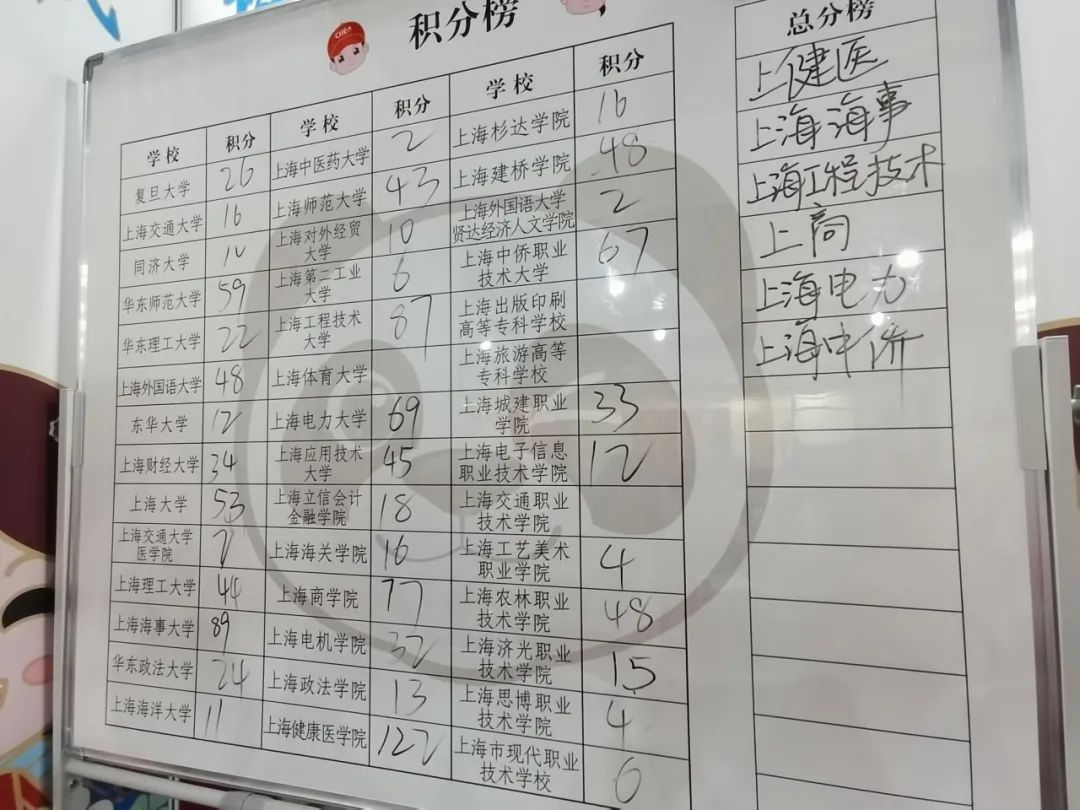 CHEA
积分榜
学校 积分 学校 积分 学校 积分
复旦大学 26 上海中医药大学 2 上海杉达学院 16
上海交通大学 16 上海师范大学 43 上海建桥学院 48
同济大学 10 上海对外经贸大学 10 上海外国语大学贤达经济人文学院 2
华东师范大学 59 上海第二工业大学 6 上海中侨职业技术大学 67
华东理工大学 22 上海工程技术大学 87 上海出版印刷高等专科学校
上海外国语大学 48 上海体育大学 上海旅游高等专科学校
东华大学 12 上海电力大学 69 上海城建职业学院 33
上海财经大学 34 上海应用技术大学 45 上海电子信息职业技术学院 12
上海大学 53 上海立信会计金融学院 18 上海交通职业技术学院
上海交通大学医学院 上海海关学院 16 上海工艺美术职业学院 4
上海理工大学 44 上海商学院 77 上海农林职业技术学院 48
上海海事大学 89 上海电机学院 32 上海济光职业技术学院 15
华东政法大学 24 上海政法学院 13 上海思博职业技术学院 4
上海海洋大学 11 上海健康医学院 122 上海市现代职业技术学校 6
总分榜
上健医
上海海事
上海工程技术
上商
上海电力
上海中侨